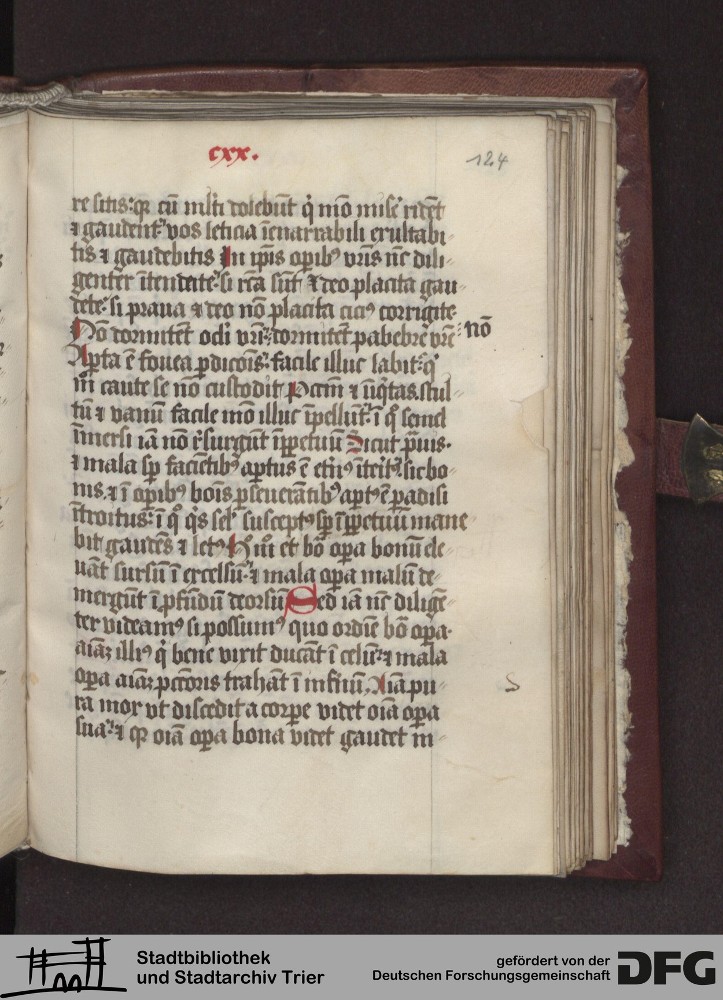 cxx.
124
re sitis: qꝛ cū ml̄ti dolebūt q̇ mō mise ̓ ridēt
⁊ gaudent: vos leticia īenarrabili exultabi
tis ⁊ gaudebitis In ip̄is opib⁹ vr̄is nūc dili
genter ītendite: si rc̄a sūt ⁊ deo placita gau
dete: si praua ⁊ deo nō placita cici⁹ corrigite
Nō dormitēt oc̄li vr̄i: dormitēt palpebre vr̄e: nō
Apta ē fouea ꝑdicōis: facile illuc labit: qͥ
in caute se nō custodit Pctm̄ ⁊ iīq̇tas. stul
tū ⁊ vanū facile mō illuc īpellūt: ī q̊ semel
īmersi iā nō r̓surgūt īꝑpetuū Sicut
⁊ mala sꝑ faciētib⁹ aꝑtus ē sic bo
nis. ⁊ ī oꝑib⁹ bōis ꝑseuerātib⁹ aꝑt⁹ ē ꝑadisi
ītroitus: ī q̊ q̇s sel̓ suscept⁹ sꝑ īꝑpetuū mane
bit gaudēs ⁊ let⁹ et bō oꝑa bonū ele
uāt sursū ī excelsū: ⁊ mala oꝑa malū de
mergūt ī ꝓfūdū deorsū Sed iā nūc diligē
ter videam⁹ si possum⁹ quo ordīe bō oꝑa
aīaꝫ illi⁹ q̇ bene vixit ducāt ī celū: ⁊ mala
oꝑa aīaꝫ pctōris trahāt ī infnū, Aīa pu
ra mox vt discedit a corꝑe videt oīa oꝑa
sua: ⁊ qꝛ oīa oꝑa bona videt gaudet in
Stadtbibliothek
und Stadtarchiv Trier
gefördert von der
Deutschen Forschungsgemeinschaft
DFG